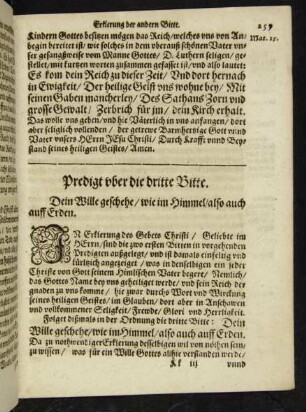 Erklerung der andern Bitt.
259
Kindern Gottes besitzen mögen das Reich/welches vns von An-
Mat. 25.
begin bereitet ist/ wie solches in dem vberauß schönen Vater vn-
ser gesangßweise vom Manne Gottes/ D. Luthern seligen/ ge-
stellet/mit kurtzen worten zusammen gefasset ist/vnd also lautet:
Es kom dein Reich zu dieser Zeit/ Vnd dort hernach
in Ewigkeit/ Der heilige Geist vns wohne bey/ Mit
seinen Gaben mancherley/ Des Sathans Zorn vnd
grosse Gewalt/ Zerbrich für jm/ dein Kirch erhalt.
Das wolle vns geben/vnd hie Väterlich in vns anfangen/ dort
aber seliglich vollenden/ der getrewe Barmhertzige Gott vnnd
Vater vnsers HErrn JEsu Christi/ Durch Krafft vnnd Bey-
stand seines heiligen Geistes/ Amen.
Predigt vber die dritte Bitte.
Dein Wille geschehe/ wie im Himmel/also auch
auff Erden.
IN Erklerung des Gebets Christi/ Geliebte im
HErrn/sind die zwo ersten Bitten in vorgehenden
Predigten außgelegt/ vnd ist domals einfeltig vnd
kürtzlich angezeiget/ was in denselbigen ein jeder
Christe von Gott seinem Himlischen Vater begert/ Nemlich/
das Gottes Name bey vns geheiliget werde/ vnd sein Reich der
gnaden zu vns komme/ hie zwar durchs Wort vnd Wirckung
seines heiligen Geistes/im Glauben/ dort aber in Anschawen
vnd vollkommener Seligkeit/ Frewde/ Glori vnd Herrligkeit.
Folget dißmals in der Ordnung die dritte Bitt: Dein
Wille geschehe/wie im Himmel/also auch auff Erden.
Da zu nothwendiger Erklerung desselbigen wil von nöthen sein/
zu wissen/ was für ein Wille Gottes alhie verstanden werde/
Kk iij
vnnd